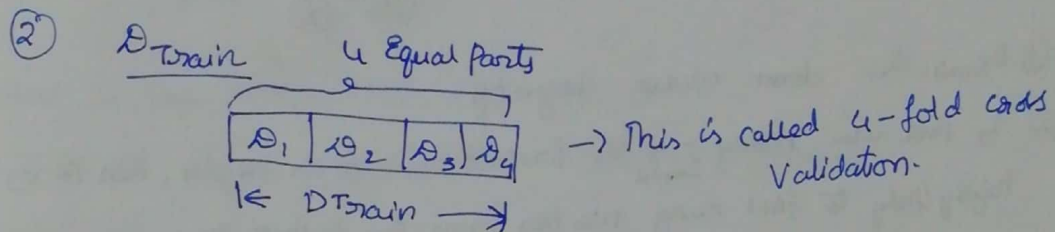 ② D Train 4 Equal Parts
D1 D2 D3 D4 → This is called 4-fold cross
Validation.
|← DTrain →